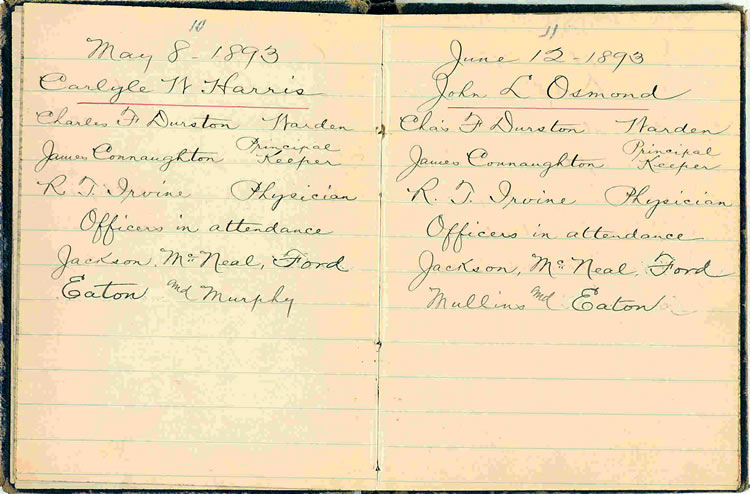 10
May 8 - 1893
Carlyle W Harris
Charles F Durston Warden
James Connaughton Principal Keeper
R. T. Irvine Physician
Officers in attendance
Jackson, McNeal, Ford
Eaton and Murphy
11
June 12 - 1893
John L Osmond
Chas F Durston Warden
James Connaughton Principal Keeper
R. T. Irvine Physician
Officers in attendance
Jackson, McNeal, Ford
Mullins and Eaton